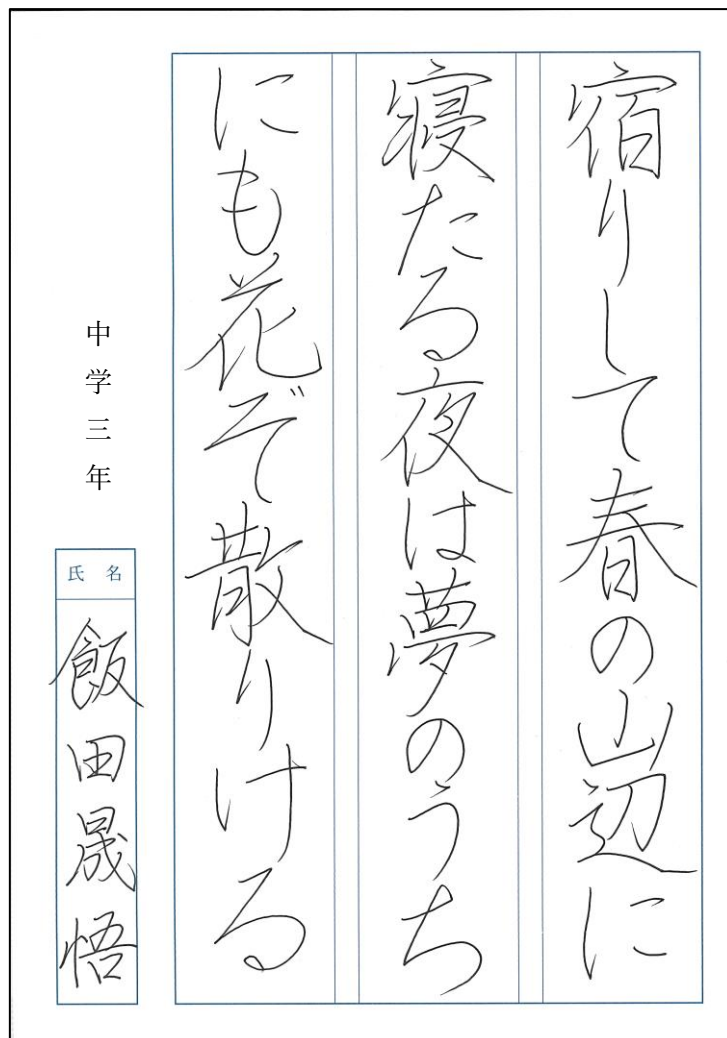 宿りして春の山辺に
寝たる夜は夢のうち
にも花ぞ散りける
中学三年
氏名
飯田晟悟